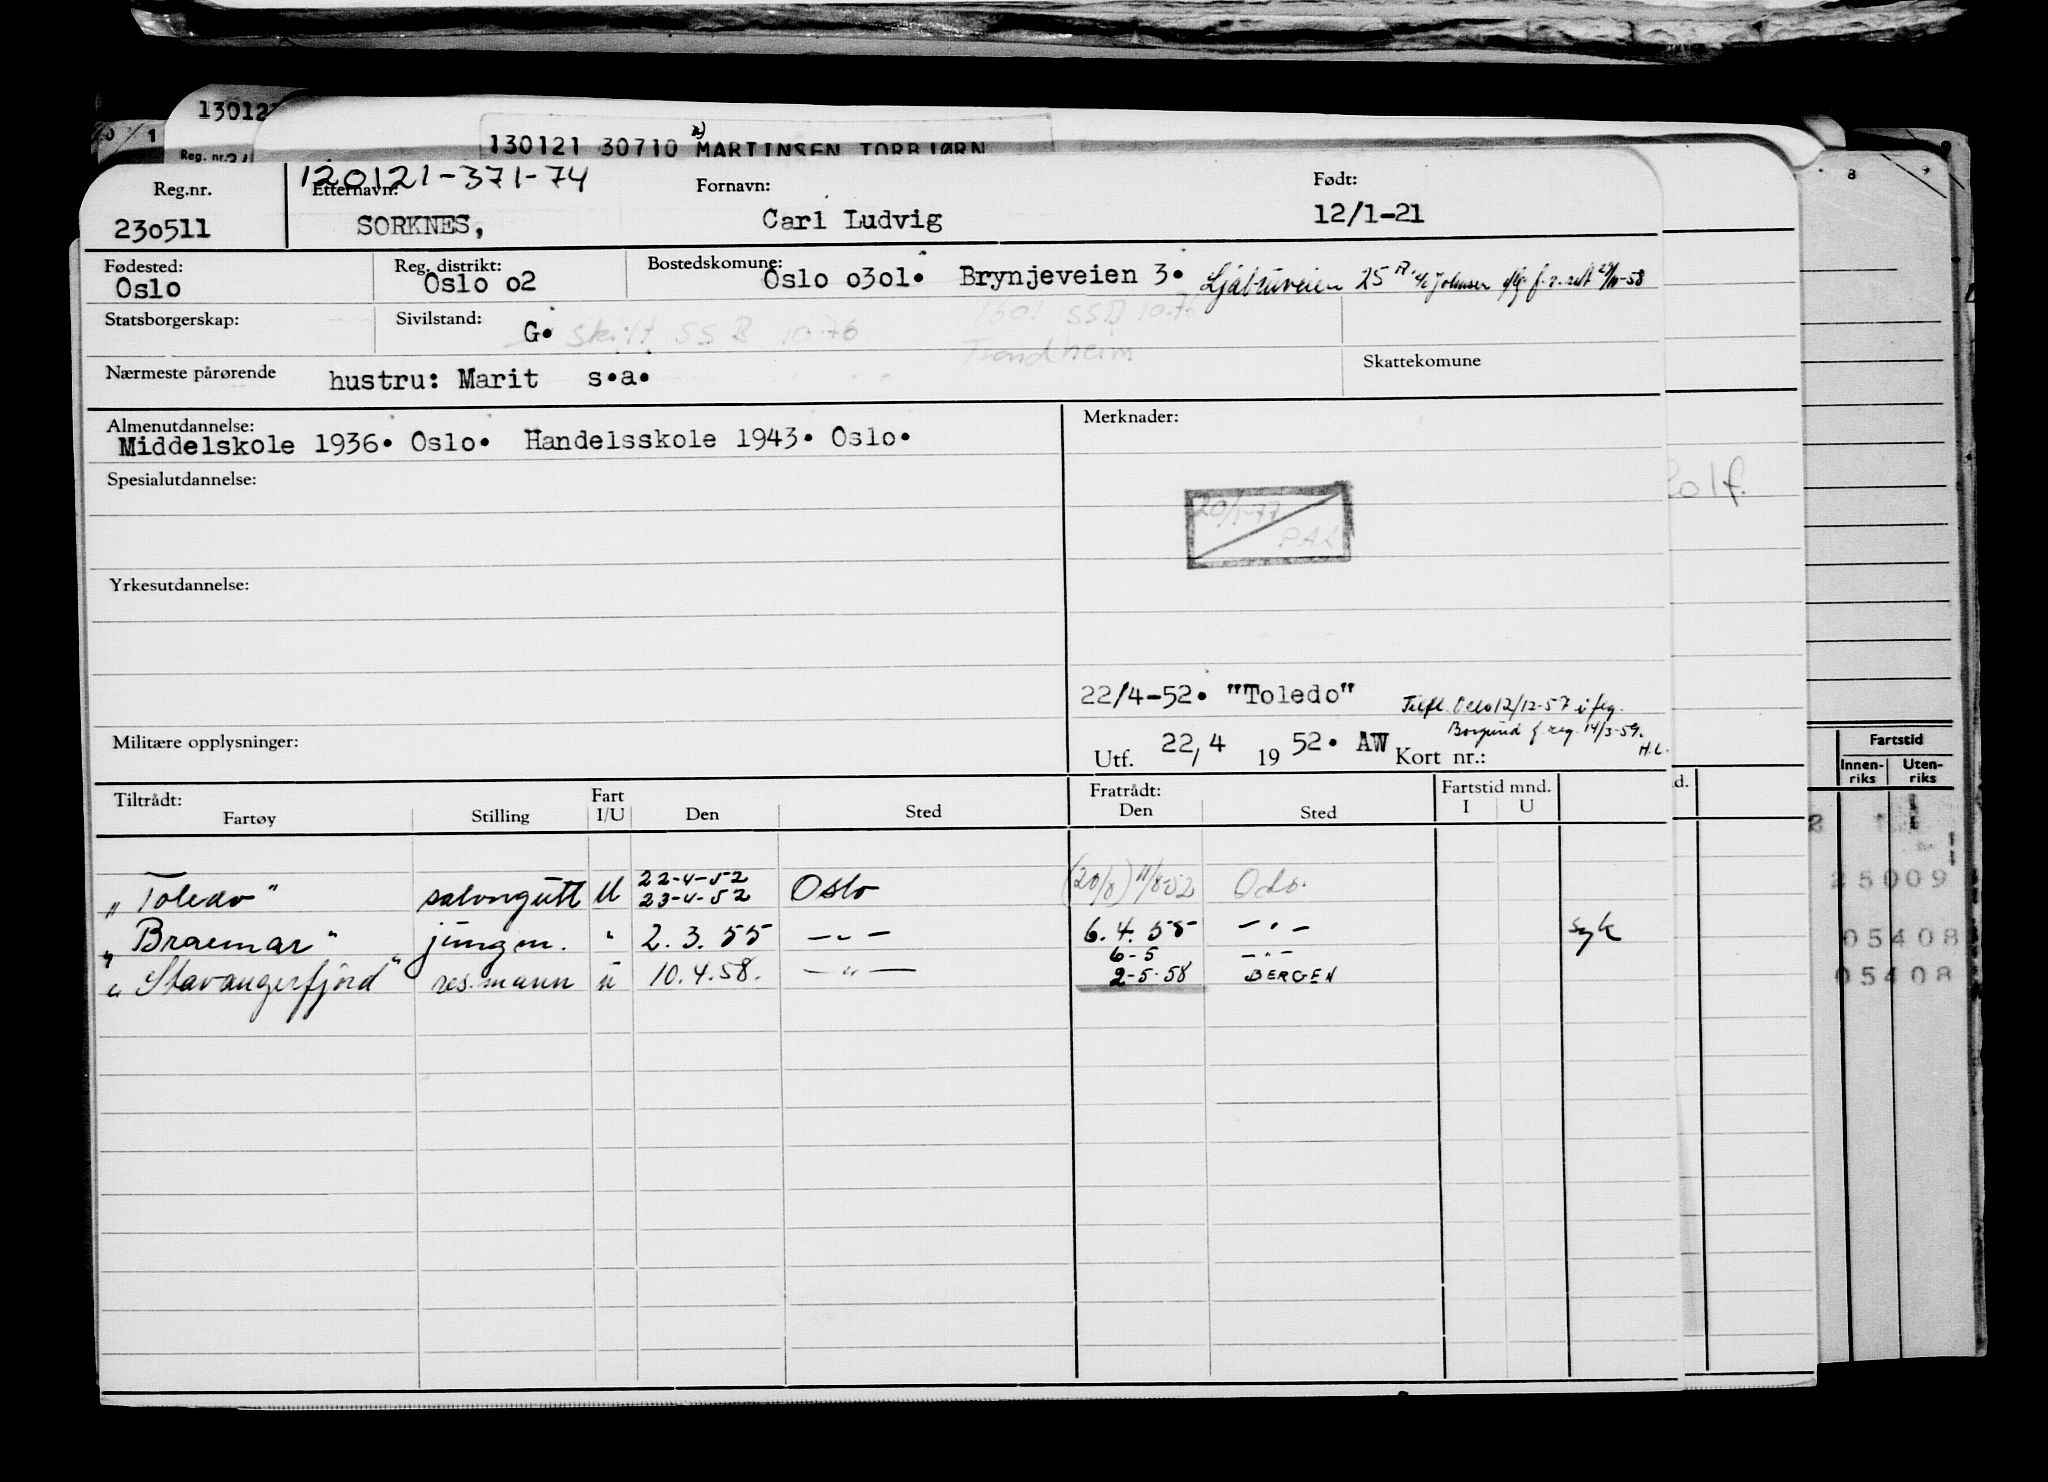 13012
130121 30710 MARTINSEN TORBJØRN
0 / 1
Reg. nr.
120121-371-74
Reg.nr. Etternavn: Fornavn: Født:
230511 SORKNES, Carl Ludvig 12/1-21
Fødested: Reg. distrikt: Bostedskomune:
Oslo Oslo 02 Oslo 0301. Brynjeveien 3. Ljabruveien 25
Statsborgerskap: Sivilstand:
G. skilt SSB 10-76 1601 SSB 10.76
Trondheim
Nærmeste pårørende hustru: Marit s.a. Skattekomune
Almenutdannelse: Merknader:
Middelskole 1936. Oslo. Handelsskole 1943. Oslo.
Spesialutdannelse:
20/1-77
PAL
Yrkesutdannelse:
22/4-52. "Toledo"
Tilfl. Oslo 12/12-57 i flg.
Borgund f. reg. 14/3-59.
H.L.
Militære opplysninger:
Utf. 22,4 1952. AW Kort nr.:
Tiltrådt: Fart Fratrådt: Fartstid mnd.
Fartøy Stilling I/U Den Sted Den Sted I U
22-4-52
"Toledo" salongutt U 23-4-52 Oslo (20/8) 11/8-52 Oslo.
"Braemar" jungm. " 2.3.55 —"— 6.4.55 —"— syk
6-5 —"—
"Stavangerfjord" res.mann u 10.4.58. —"— 2-5-58 BERGEN
olf.
8
Fartstid
Innen-riks Uten-riks
d.
2
25009
05408
05408